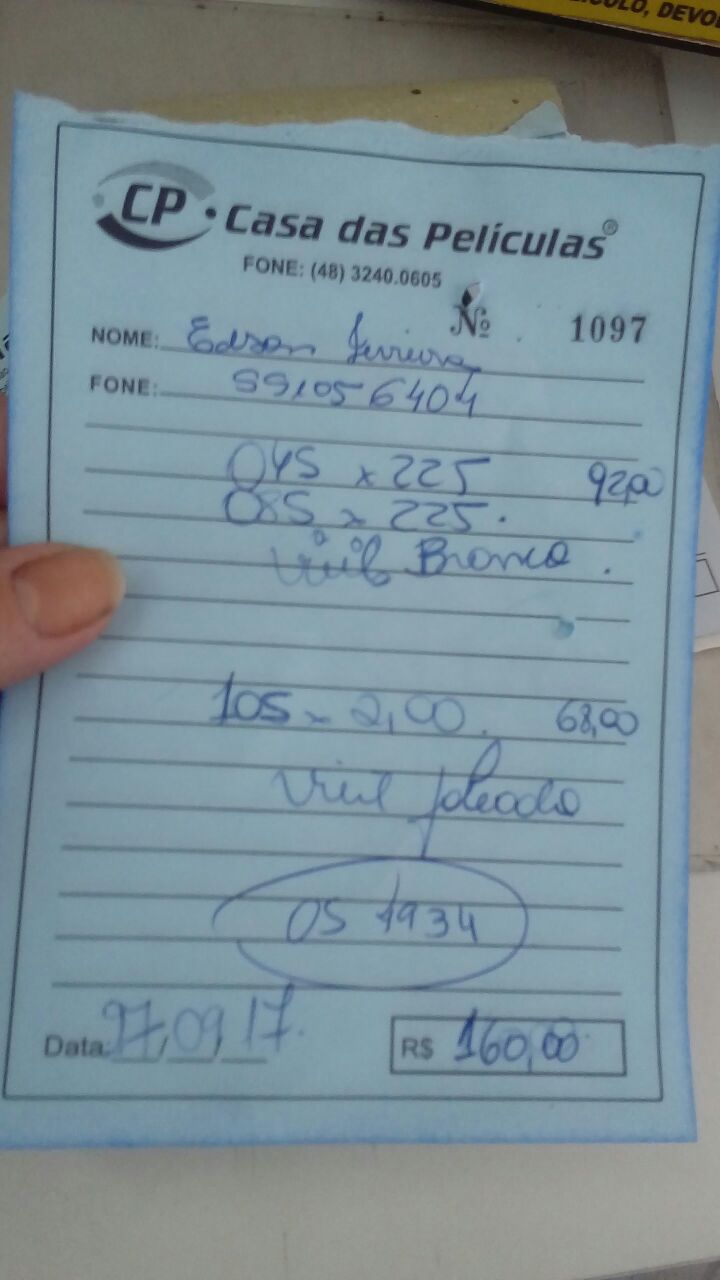 CULO, DEVO
CP Casa das Películas®
FONE: (48) 3240.0605
Nº 1097
NOME: Edson Ferreira
FONE: 991056404
045 x 225 92,00
085 x 225.
Branco.
105 x 2,00. 68,00
OS 1934
Data: 27,09,17.
R$ 160,00